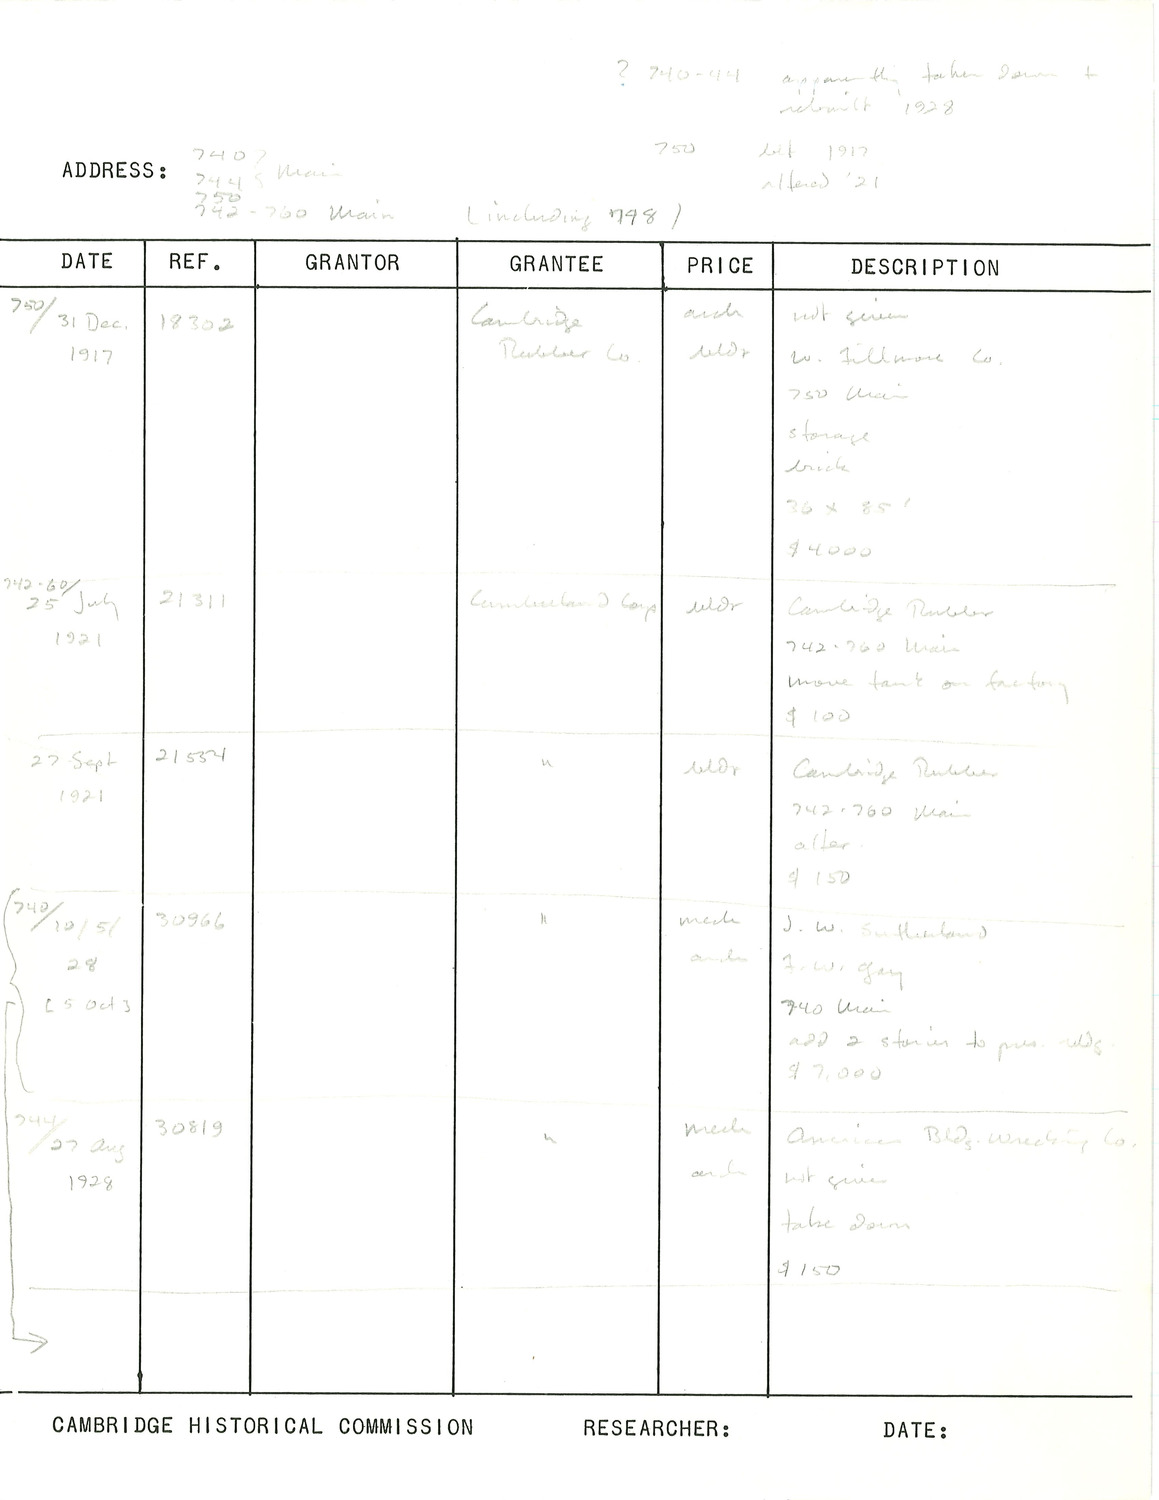 ? 740-44 apparently taken down +
rebuilt 1928
750 blt 1917
altered '21
ADDRESS: 740 } Main
744
750
742-760 Main (including 748)
DATE REF. GRANTOR GRANTEE PRICE DESCRIPTION
750/ 31 Dec. 18302 Cambridge arch not given
1917 Rubber Co. bldr W. Fillmore Co.
750 Main
storage
brick
36 x 85'
$4000
742-60/
25 July 21311 Cumberland Corp bldr Cambridge Rubber
1921 742-760 Main
move tank on factory
$ 100
27 Sept 21554 " bldr Cambridge Rubber
1921 742-760 Main
alter.
$ 150
740/ 10/5/ 30966 " mech J. W. Sutherland
28 arch F. W. Gay
[5 Oct] 740 Main
add 2 stories to pres. bldg.
$ 7,000
744/ 27 Aug 30819 " mech American Bldg. Wrecking Co.
1928 arch not given
take down
$150
CAMBRIDGE HISTORICAL COMMISSION RESEARCHER: DATE: